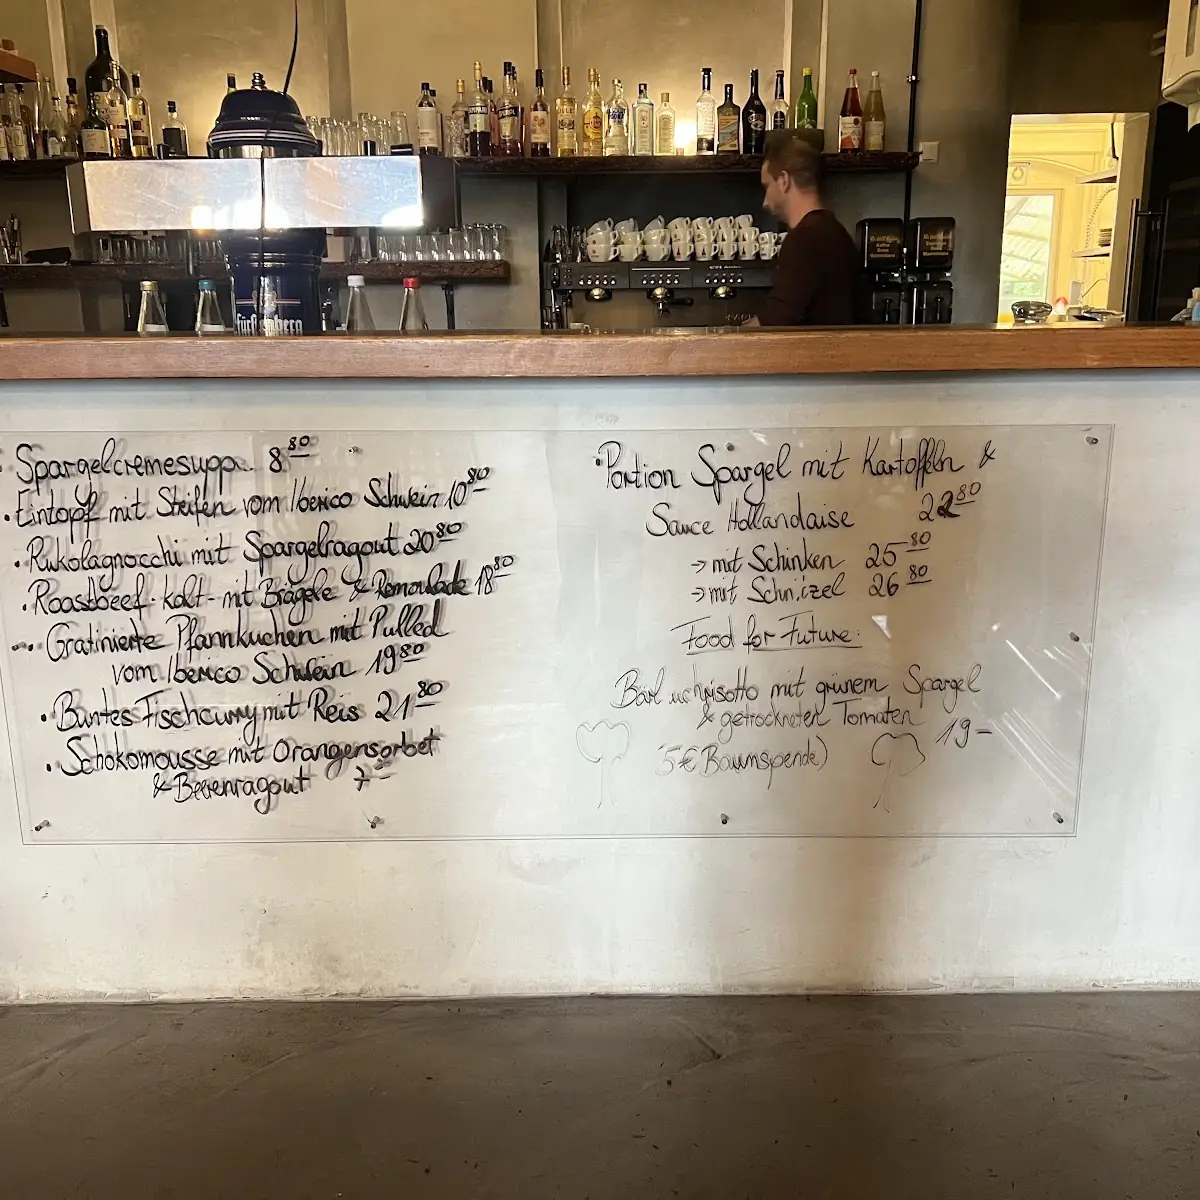 Spargelcremesupp.. 8 80
· Eintopf mit Steifen vom Iberico Schwein 10 80
· Rukolagnocchi mit Spargelragout 20 80
· Roastbeef - kalt - mit Brägele & Remoulade 18 80
· Gratinierte Pfannkuchen mit Pulled
vom Iberico Schwein 19 80
· Buntes Fischcurry mit Reis 21 80
· Schokomousse mit Orangensorbet
& Beerenragout
· Portion Spargel mit Kartoffeln &
Sauce Hollandaise 22 80
→ mit Schinken 25 80
→ mit Schnitzel 26 80
Food for Future
Bärl uchrisotto mit grünem Spargel
& getrockneten Tomaten 19-
5€ Baumspende)